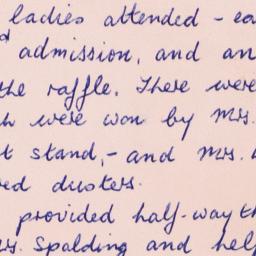 ladies attended - ea
admission, and an
the raffle. There were
h were won by Mrs.
t stand, - and Mrs.
red dusters.
provided half-way th
rs. Spalding and help